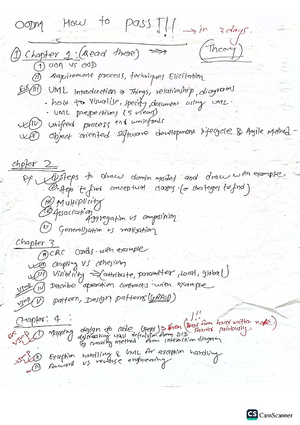 OODM How to Pass !!!
→ in 3 days.
① Chapter 1: (Read these) ⇒ (Theory)
① OOA vs OOD
② Requirement process, techniques Elicitation
③ UML Introduction → Things, relationship, diagrams
- how to visualise, specify, document using UML.
- UML perspectives (5 views)
④ Unified process and workflows
⑤ Object oriented software development lifecycle & Agile Method
chpter 2
① Steps to draw domain model and draw with example
② Step to find conceptual classes (or strategies to find)
③ Multiplicity
④ Association
Aggregation vs composition
⑤ Generalization vs realization
Chapter 3
① CRC cards with example
② coupling vs cohesion
③ Visibility → (attribute, parameter, local, global)
④ Describe operation contracts with example
⑤ pattern, Design patterns (GRASP)
Chapter: 4
① Mapping design to code (steps)
class definition from DCD
creating method from interaction diagram
② Exception handling & UML for exception handling
③ Forward vs reverse engineering
CS CamScanner